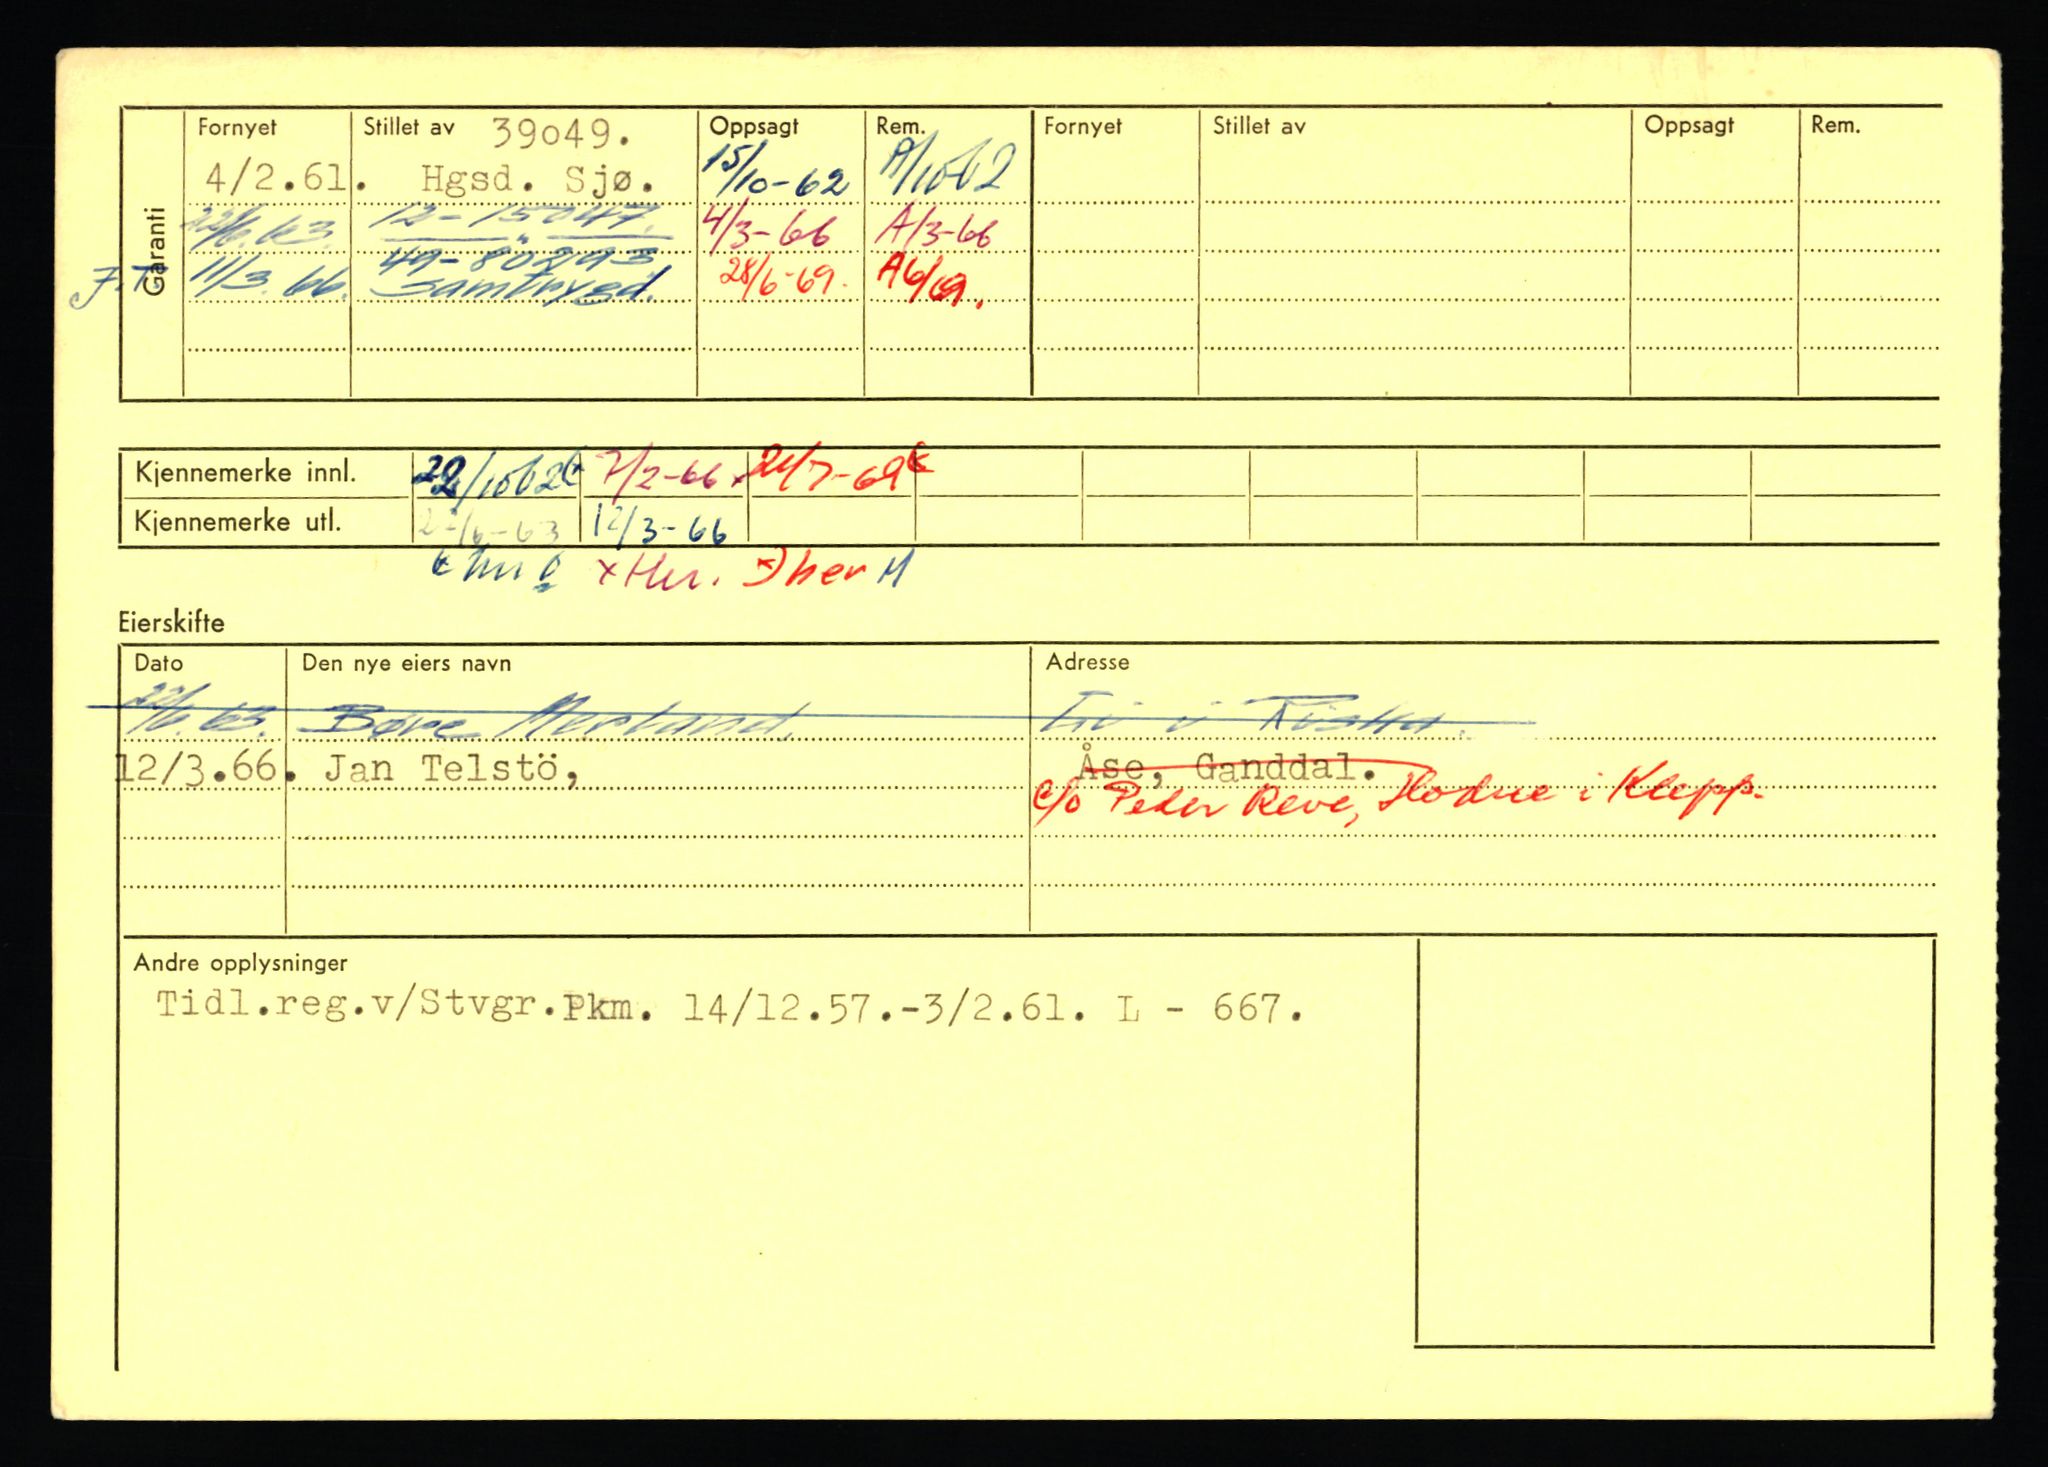 Garanti
Fornyet Stillet av 39o49. Oppsagt Rem. Fornyet Stillet av Oppsagt Rem.
4/2.61. Hgsd. Sjø. 15/10-62 A/1062
22/6.63. 12-15047. 4/3-66 A/3-66
J.T. 11/3.66. 49-80893 Samtrygd. 28/6-69. A6/69.
Kjennemerke innl. 22/1062 7/2-66 x 21/7-69
Kjennemerke utl. 22/6-63 12/3-66
x her. her M
Eierskifte
Dato Den nye eiers navn Adresse
22/6.63. Børe Merland. i Riska.
12/3.66. Jan Telstö, Åse, Ganddal.
c/o Peder Reve, Hodne i Klepp.
Andre opplysninger
Tidl.reg.v/Stvgr.Pkm. 14/12.57.-3/2.61. L - 667.